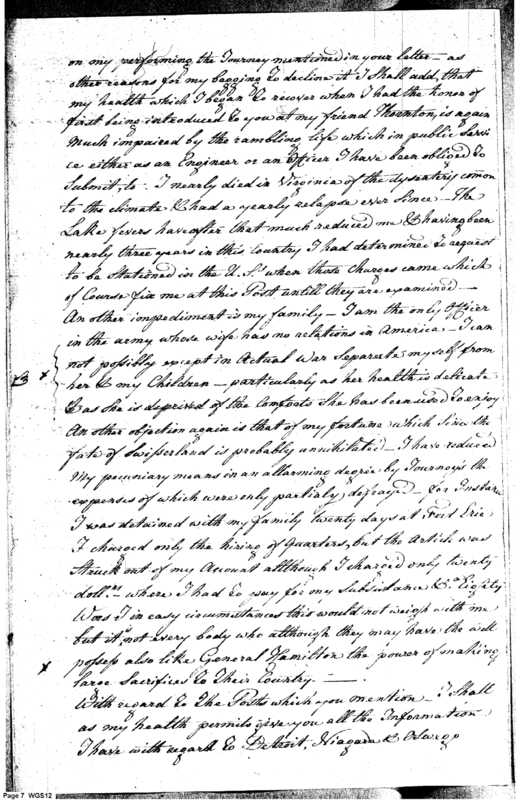 on my performing the Journey mentioned in your letter – as
other reasons for my begging to decline it I shall add, that
my health which I began to recover when I had the honor of
first being introduced to you at my friend Thornton, is again
much impaired by the rambling life which in public servi
ce either as an Engineer or an officer I have been obliged to
submit to. I nearly died in Virginia of the dysentery comon
to the climate & had a yearly relapse ever since – The
Lake fevers have after that much reduced me & having been
nearly three years in this Country I had determined to request
to be stationed in the U. S.' when those charges came which
of Course fix me at this Post untill they are examined –
An other impediment is my family – I am the only officer
in the army whose wife has no relations in America – I can
not possibly except in Actual War separate myself from
her & my Children – particularly as her health is delicate
& as she is deprived of the Comforts she has been used to enjoy
An other objection again is that of my fortune which since the
fate of Swisserland is probably annihilated – I have reduced
my pecuniary means in an allarming degree by Journey's the
expences of which were only partialy defrayed – for Instance
I was detained with my family twenty days at Fort Erie
I charged only the hiring of Quarters, but the Article was
Struck out of my Account allthough I charged only twenty
doll.rs – where I had to pay for my Subsistance &.a Eighty
Was I in easy circumstances this would not weigh with me
but it's not every body who although they may have the will
possess also like General Hamilton the power of making
large Sacrifices to Their Country. –
With regard to the Posts which you mention – I shall
as my health permits give you all the Information
I have with regard to Detroit, Niagara & Oswego
x
x
Page 7 WGS12